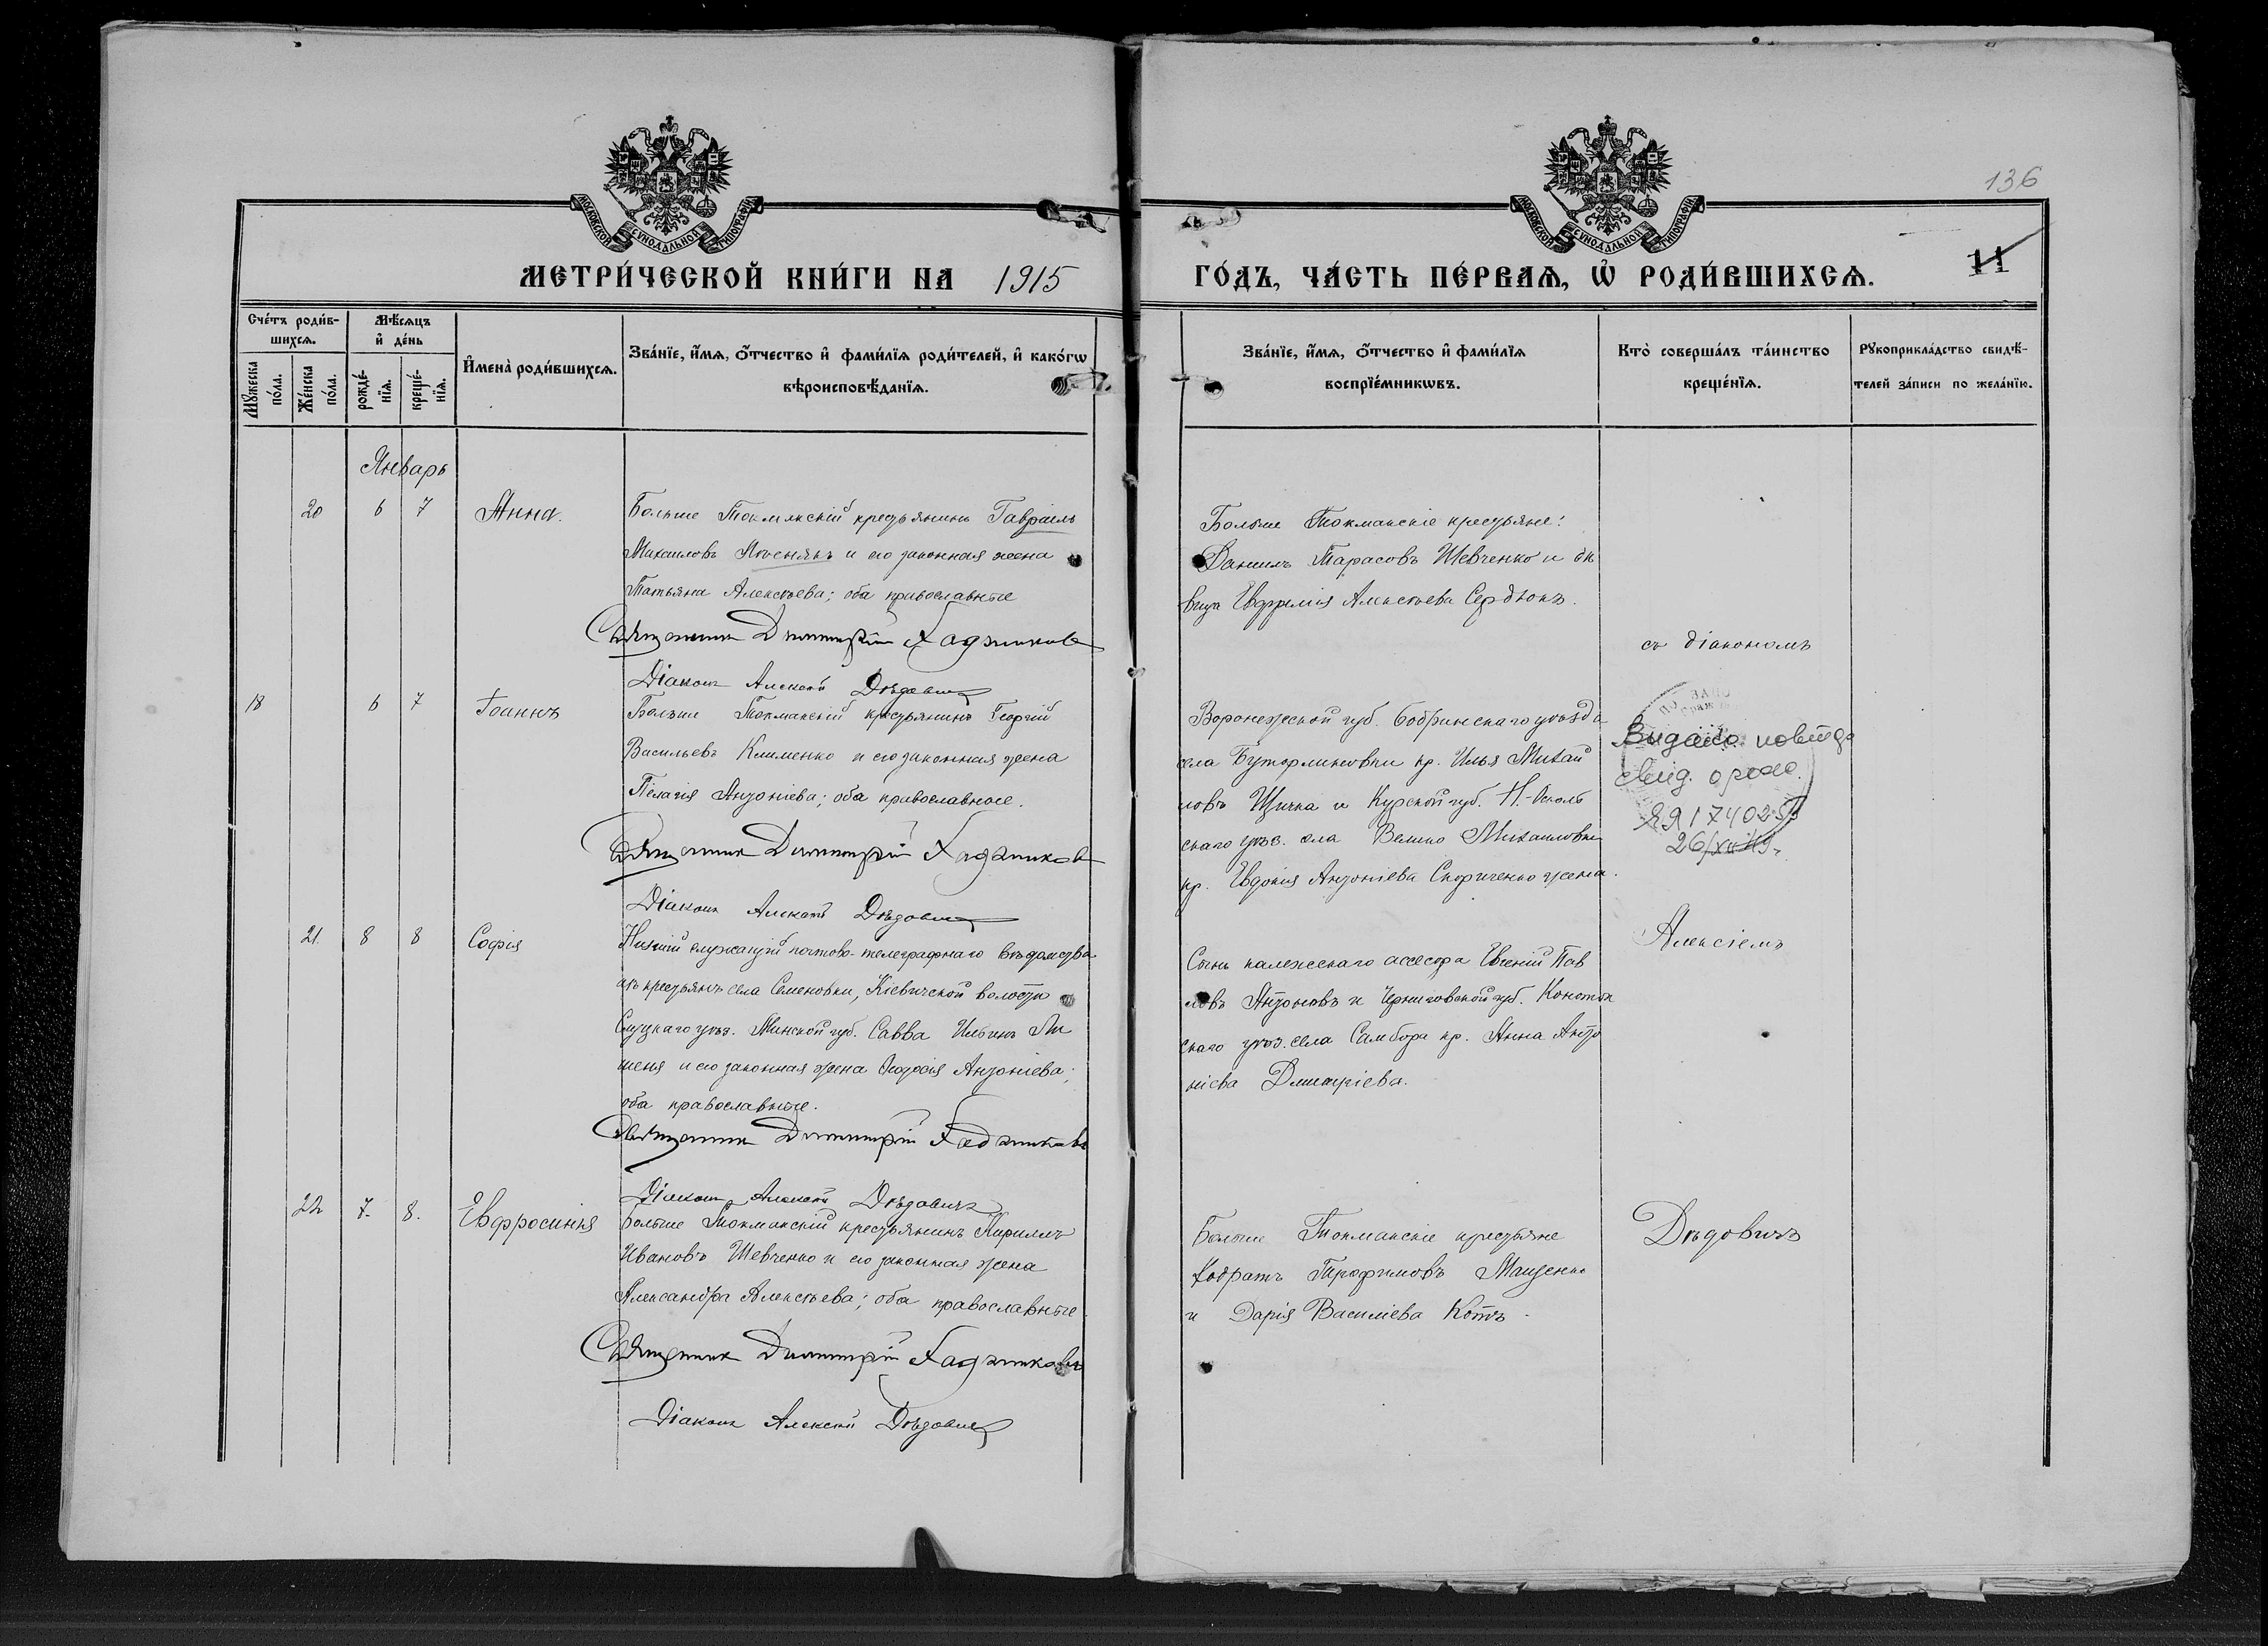 136
11
МОСКОВСКОЙ СУНОДАЛЬНОЙ ТИПОГРАФІИ
МОСКОВСКОЙ СУНОДАЛЬНОЙ ТИПОГРАФІИ
МЕТРИ́ЧЕСКОЙ КНИ́ГИ НА 1915 ГО́ДЪ, ЧА́СТЬ ПЕ́РВАѦ, Ѡ҆ РОДИ́ВШИХСѦ.
Сче́тъ роди́в-
шихсѧ.
Мꙋ́жеска по́ла.
Же́нска по́ла.
Мѣ́сѧцъ
и҆ де́нь
рожде́-
нїѧ.
креще́-
нїѧ.
И҆мена̀ роди́вшихсѧ.
Зва́нїе, и҆́мѧ, ѻ҆́тчество и҆ фами́лїѧ роди́телей, и҆ како́гѡ
вѣроисповѣ́данїѧ.
Зва́нїе, и҆́мѧ, ѻ҆́тчество и҆ фами́лїѧ
воспрїе́мникѡвъ.
Кто̀ соверша́лъ та́инство
креще́нїѧ.
Рꙋкоприкла́дство свидѣ́-
телей за́писи по жела́нїю.
Январь
20 6 7 Анна.
Больше Токмакскій крестьянинъ Гавріилъ
Михаиловъ и его законная жена
Татьяна Алексѣева; оба православные
Священникъ Димитрій Хаджиновъ
Діаконъ Алексѣй Дѣдовичъ
Больше Токманскіе крестьяне:
Даніилъ Тарасовъ Шевченко и дѣ
вица Алексѣева Сердюкъ.
съ діакономъ
18 6 7 Іоаннъ
Больше Токмакскій крестьянинъ Георгій
Васильевъ Клименко и его законная жена
Пелагія Антоніева; оба православные.
Священникъ Димитрій Хаджиновъ
Діаконъ Алексѣй Дѣдовичъ
Воронежской губ. Бобринскаго уѣзда
села Бутурлиновки кр. Илья Михаи
ловъ Щичка и Курской губ. Н.-Осколь
скаго уѣз. села Велико Михаиловки
кр. Евдокія Антоніева Скориченко жена.
Видано повторно
свід. о рожд.
ЯЯ 174025
26/XII 49 г.
21. 8 8 Софія
Низшій служащій почтово-телеграфнаго вѣдомства
изъ крестьянъ села Семеновки, Кіевичской волости
Слуцкаго уѣз. Минской губ. Савва Ильинъ Ли
шеня и его законная жена Ѳеодосія Антоніева;
оба православные.
Священникъ Димитрій Хаджиновъ
Діаконъ Алексѣй Дѣдовичъ
Сынъ калежскаго ассесора Евгеній Пав
ловъ Антоновъ и Черниговской губ. Конотоп
скаго уѣз. села Самбора кр. Анна Анто
ніева Дмитріева.
Алексіемъ
22 7. 8. Евфросинія
Больше Токмакскій крестьянинъ Кириллъ
Ивановъ Шевченко и его законная жена
Александра Алексѣева; оба православные.
Священникъ Димитрій Хаджиновъ
Діаконъ Алексѣй Дѣдовичъ
Больше Токманскіе крестьяне
Кодратъ Трофимовъ Маценко
и Дарія Василіева Котъ.
Дѣдовичъ